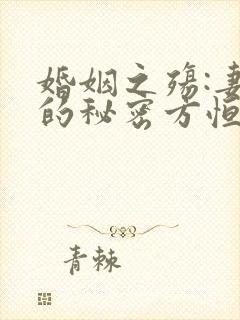 婚姻之殇:妻
的秘密方恒
青棘